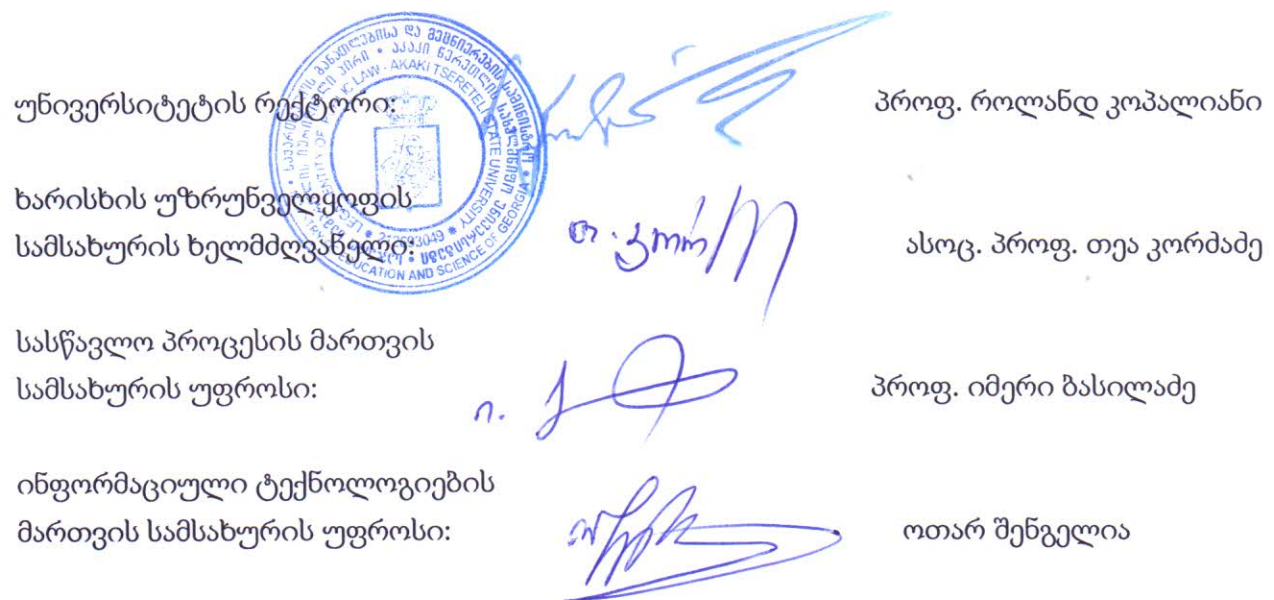 უნივერსიტეტის რექტორი: პროფ. როლანდ კოპალიანი
ხარისხის უზრუნველყოფის
სამსახურის ხელმძღვანელი: ასოც. პროფ. თეა კორძაძე
სასწავლო პროცესის მართვის
სამსახურის უფროსი: პროფ. იმერი ბასილაძე
ინფორმაციული ტექნოლოგიების
მართვის სამსახურის უფროსი: ოთარ შენგელია
LAW - AKAKI TSERETELI STATE UNIVERSITY
EDUCATION AND SCIENCE OF GEORGIA